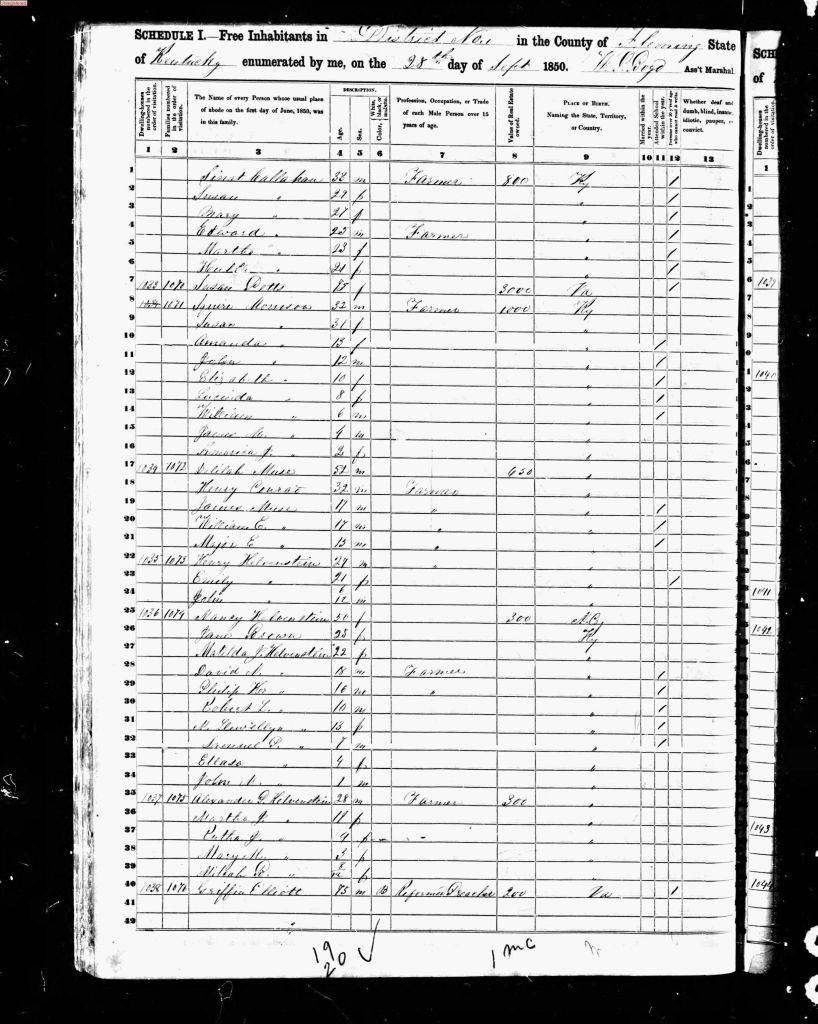 SCHEDULE I.—Free Inhabitants in District No. 1 in the County of Fleming State
of Kentucky enumerated by me, on the 28th day of Sept 1850. Boyd Ass't Marshal.
Dwelling-houses numbered in the order of visitation.
Families numbered in the order of visitation.
The Name of every Person whose usual place of abode on the first day of June, 1850, was in this family.
DESCRIPTION.
Age.
Sex.
Color, White, black, or mulatto.
Profession, Occupation, or Trade of each Male Person over 15 years of age.
Value of Real Estate owned.
PLACE OF BIRTH. Naming the State, Territory, or Country.
Married within the year.
Attended School within the year.
Persons over 20 y'rs of age who cannot read & write.
Whether deaf and dumb, blind, insane, idiotic, pauper, or convict.
1 2 3 4 5 6 7 8 9 10 11 12 13
1 Callahan 32 m Farmer 800 Ky /
2 Susan " 29 f " /
3 Mary " 27 f " /
4 Edward " 25 m Farmer " /
5 Martha " 23 f " /
6 " 21 f " /
7 1033 1070 Susan 85 f 3000 Va /
8 1034 1071 Squire Morrison 32 m Farmer 1000 Ky
9 Susan " 31 f "
10 Amanda " 13 f " /
11 John " 12 m " /
12 Elizabeth " 10 f " /
13 Lucinda " 8 f " /
14 William " 6 m " /
15 James M. " 4 m "
16 America J. " 2 f "
17 1034 1072 Delilah Muse 52 m 650 "
18 Henry Conrad 32 m Farmer "
19 James Muse 17 m " " /
20 William E. " 17 m " " /
21 Major E " 15 m " " /
22 1035 1073 Henry Helvenstein 29 m " "
23 Emily " 21 f " /
24 John " 6/12 m "
25 1036 1074 Nancy Helvenstein 50 f 300 N.C.
26 Jane Brown 25 f Ky
27 Matilda J. Helvenstein 22 f "
28 David N. " 18 m Farmer "
29 Philip " 16 m " " /
30 Robert L. " 10 m " /
31 M. Llewellyn " 13 f " /
32 Samuel P. " 7 m " /
33 " 4 f "
34 John N. " 1 m "
35 1037 1075 Alexander D. Helvenstein 28 m Farmer 300 "
36 Martha J. " f "
37 J. " 4 f "
38 Mary M. " 3 f "
39 R. " f "
40 1038 1076 Griffin Elliott 85 m B Reformer Preacher 200 Va /
41
42
19
20 ✓
1 mc
SCH
of
1
1039
1040
1041
1042
1043
1044